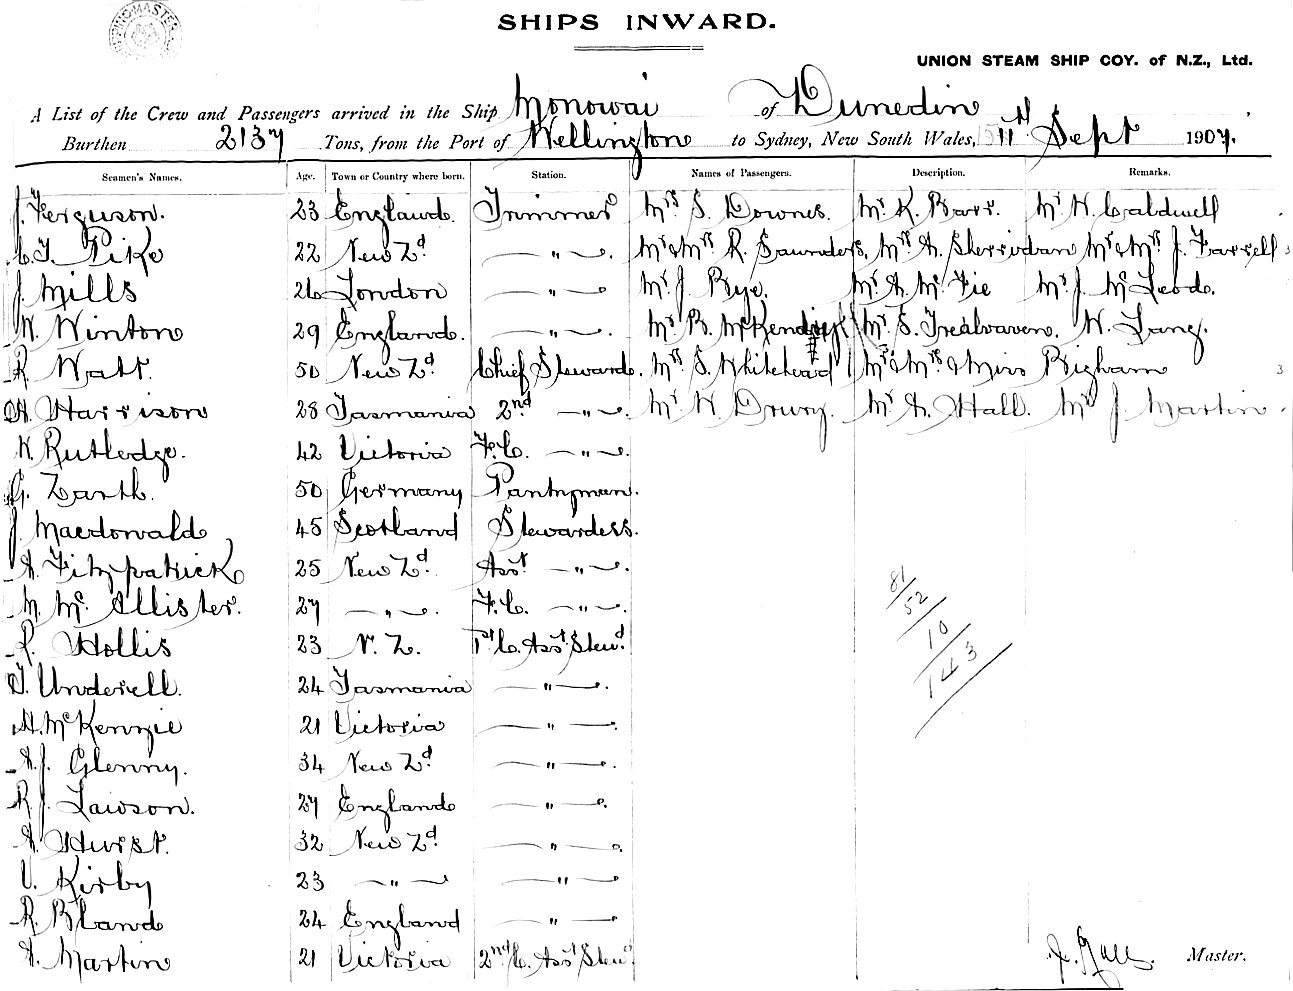 SHIPS INWARD.
UNION STEAM SHIP COY. of N.Z., Ltd.
A List of the Crew and Passengers arrived in the Ship Monowai of Dunedin
Burthen 2137 Tons, from the Port of Wellington to Sydney, New South Wales, 11th Sept 1907.
Seamen's Names. Age. Town or Country where born. Station. Names of Passengers. Description. Remarks.
J. Ferguson. 23 England. Trimmer Mrs S. Downes. Mr K. Barr. Mr W. Caldwell
C. T. Pike 22 New Zd — " — Mr & Mrs R. Saunders, Mrs A. Sherridan Mr & Mrs J. Farrell
J. Mills 26 London — " — Mr J. Rye. Mr A. Mc Fie Mr J. McLeod.
W. Winton 29 England. — " — Mr B. McKendry Mr S. W. Lang.
R. Watt. 50 New Zd Chief Steward. Mrs S. Whitehead Mr & Mrs & Miss Bigham 3
H. Harrison 28 Tasmania 2nd — " —. Mr W. Drury. Mr A. Hall. Mr J. Martin.
K. Rutledge. 42 Victoria F.C. — " —.
G. Zarth. 50 Germany Pantryman.
J. Macdonald 45 Scotland Stewardess.
A. Fitzpatrick 25 New Zd Asst — " —.
M. Mc Allister. 27 — " —. F.C. — " —.
R. Hollis 23 N. Z. 1st C. Asst Stewd.
T. Underell. 24 Tasmania — " —.
A. McKenzie 21 Victoria — " —.
A. J. Glenny. 34 New Zd — " —.
R. J. Lawson. 27 England — " —.
A. Hurst. 32 New Zd — " —.
V. Kirby 23 — " — — " —
R. Bland 24 England — " —
A. Martin 21 Victoria 2nd C. Asst Stewd.
81
52
10
143
Master.